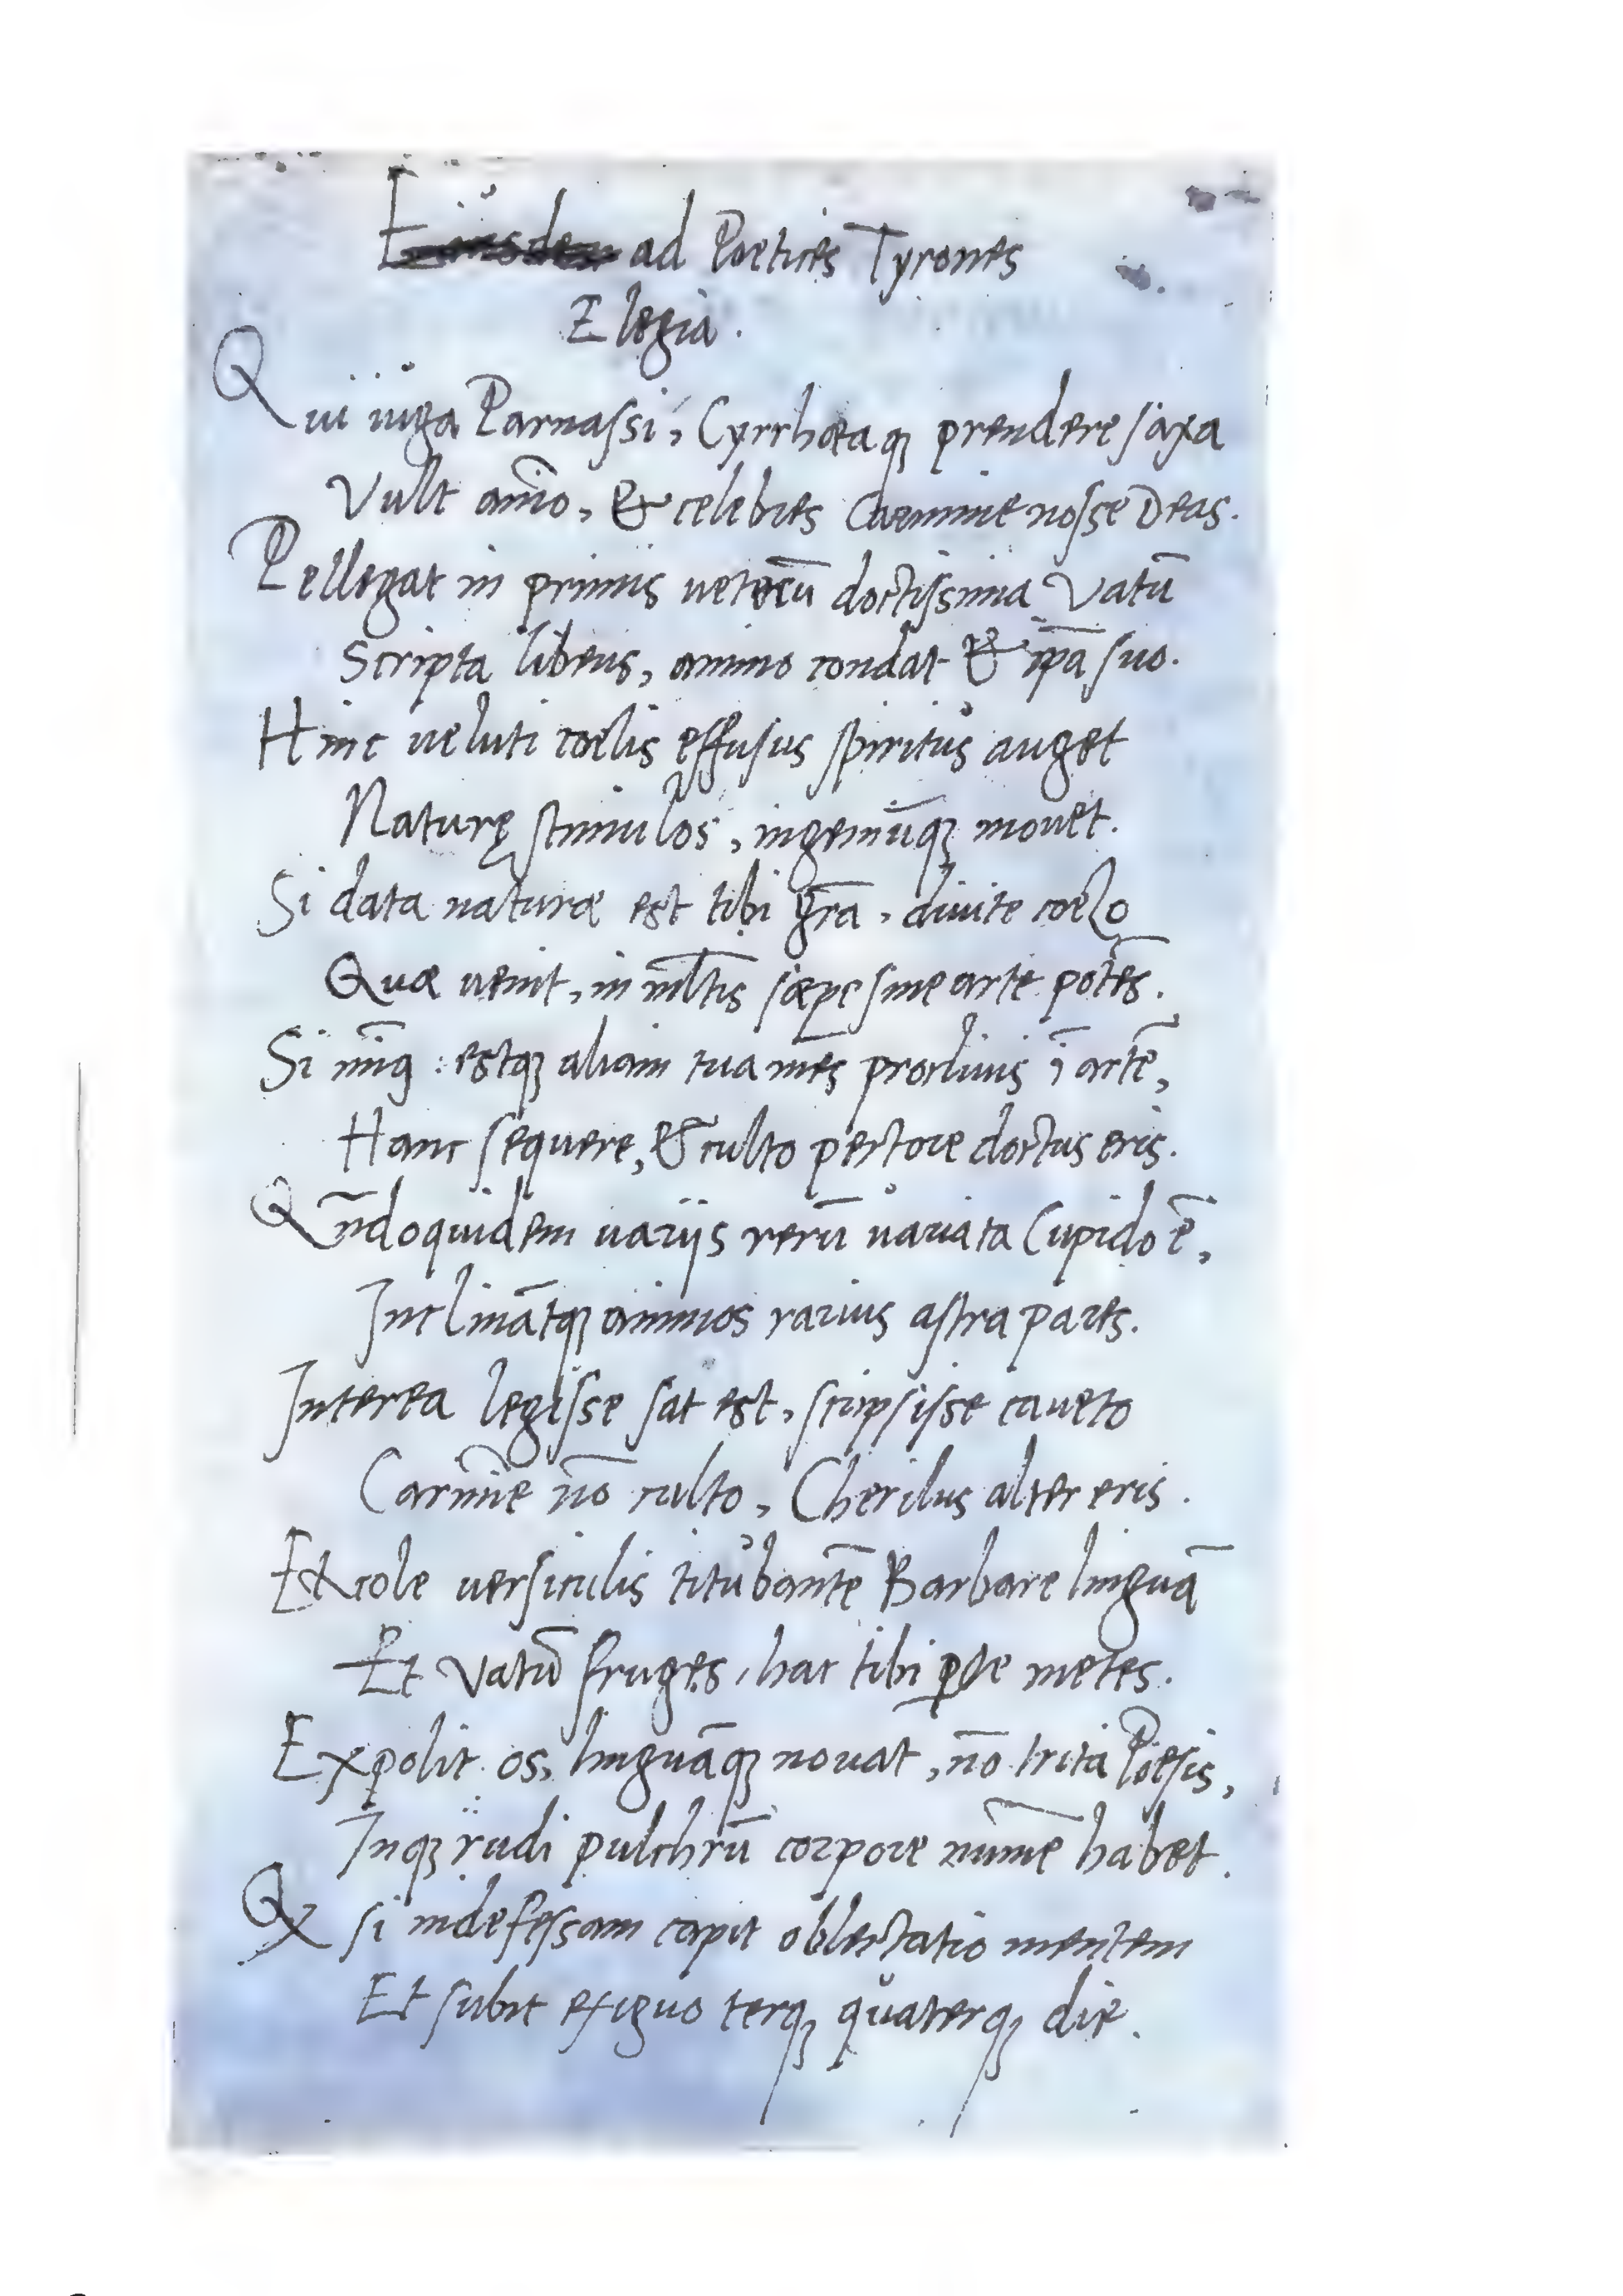 Eiusdem ad Poetices Tyrones
Elegia.
Qui iuga Parnassi, Cyrrhaeaq₃ prendere saxa
Vult aīo, & celebres Carmine nosse Deas.
Pellegat in primis ueterū doctissima Vatū
Scripta libens, animo condat & ip̄a suo.
Hinc ueluti coelis effusus spiritus auget
Naturę stimulos, ingeniūq₃ mouet.
Si data naturae est tibi gr̄a, diuite coelo
Quae uenit, in ml̄tis saepe sine arte potēs.
Si min9 : estq₃ aliam tua mēs procliuis ī artē,
Hanc sequere, & culto pectore doctus eris.
Qn̄doquidem uarijs rerū uariata Cupido ē,
Inclināt q₃ animos rarius astra pares.
Interea legisse sat est, scripsisse caueto
Carmīe nō culto, Cherilus alter eris.
Et cole uersiculis titubantē Barbare linguā
Et Vatū fruges, hac tibi metes.
Expolit os, linguāq₃ nouat, nō trita Poesis,
Inq₃ rudi pulchrū corpore numē habet.
si indefessam capit oblectatio mentem
Et subit exiguo terq₃ quaterq₃ die.